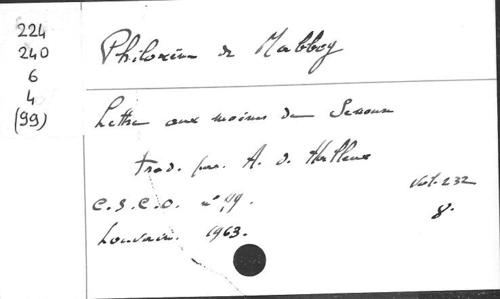 224
240
6
4
(99)
Philoxène de Mabbog
Lettre aux moines de Senoun
trad. par. A. d. Halleux
C.S.C.O. n° 99. Vol. 232
Louvain. 1963. 8.